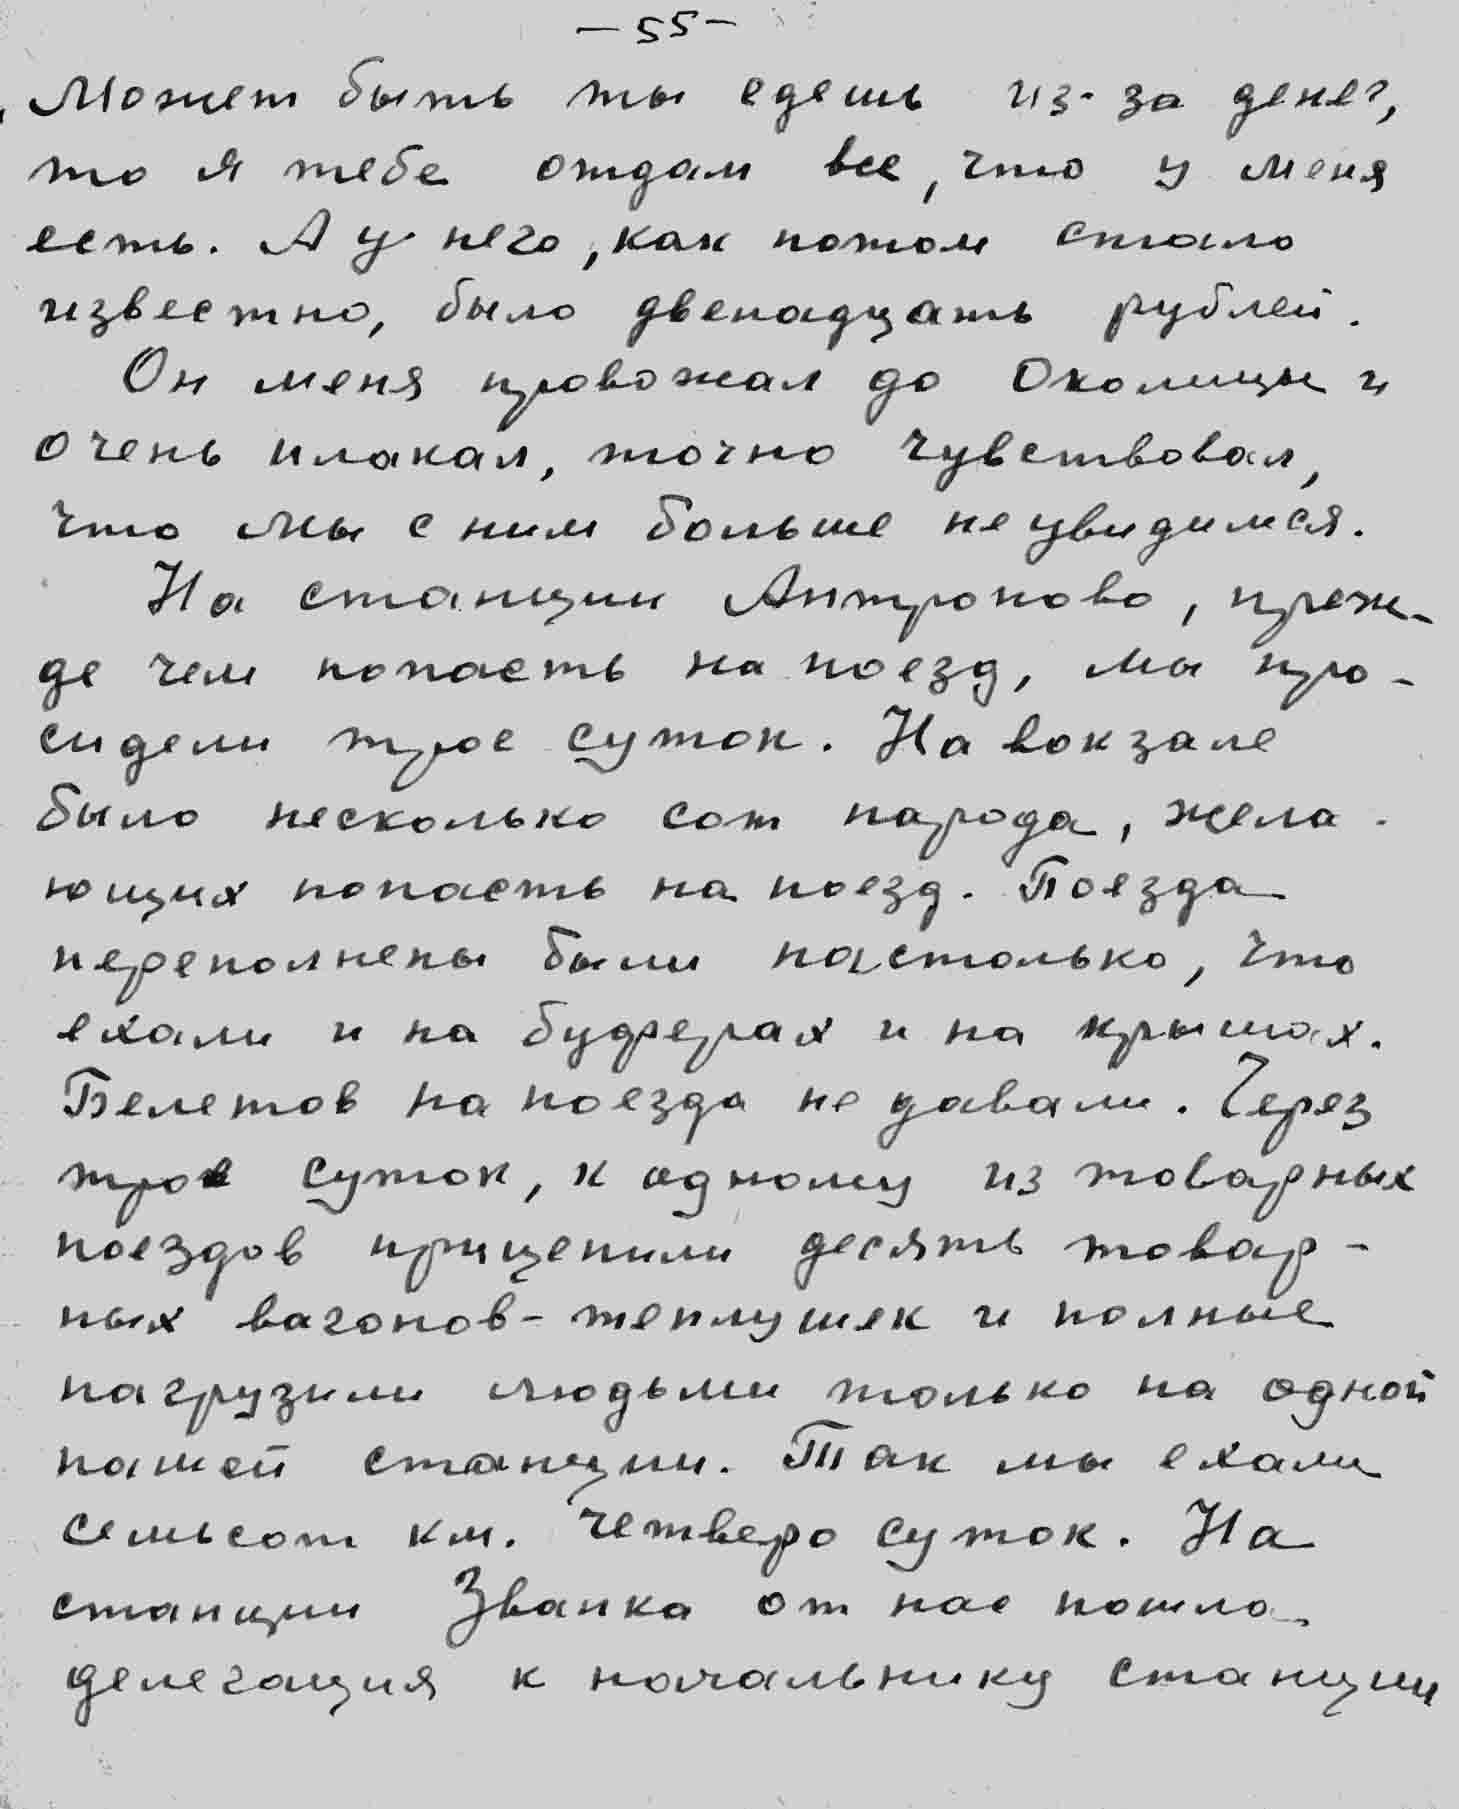 -55-
Может быть ты едешь из-за денег,
то я тебе отдам все, что у меня
есть. А у него, как потом стало
известно, было двенадцать рублей.
Он меня провожал до Околицы и
очень плакал, точно чувствовал,
что мы с ним больше не увидимся.
На станции Антропово, преж-
де чем попасть на поезд, мы про-
сидели трое суток. На вокзале
было несколько сот народа, жела-
ющих попасть на поезд. Поезда
переполнены были настолько, что
ехали и на буферах и на крышах.
Белетов на поезда не давали. Через
трое суток, к одному из товарных
поездов прицепили десять товар-
ных вагонов-теплушек и полные
нагрузили людьми только на одной
нашей станции. Так мы ехали
семьсот км. четверо суток. На
станции Званка от нас пошла
делегация к начальнику станции